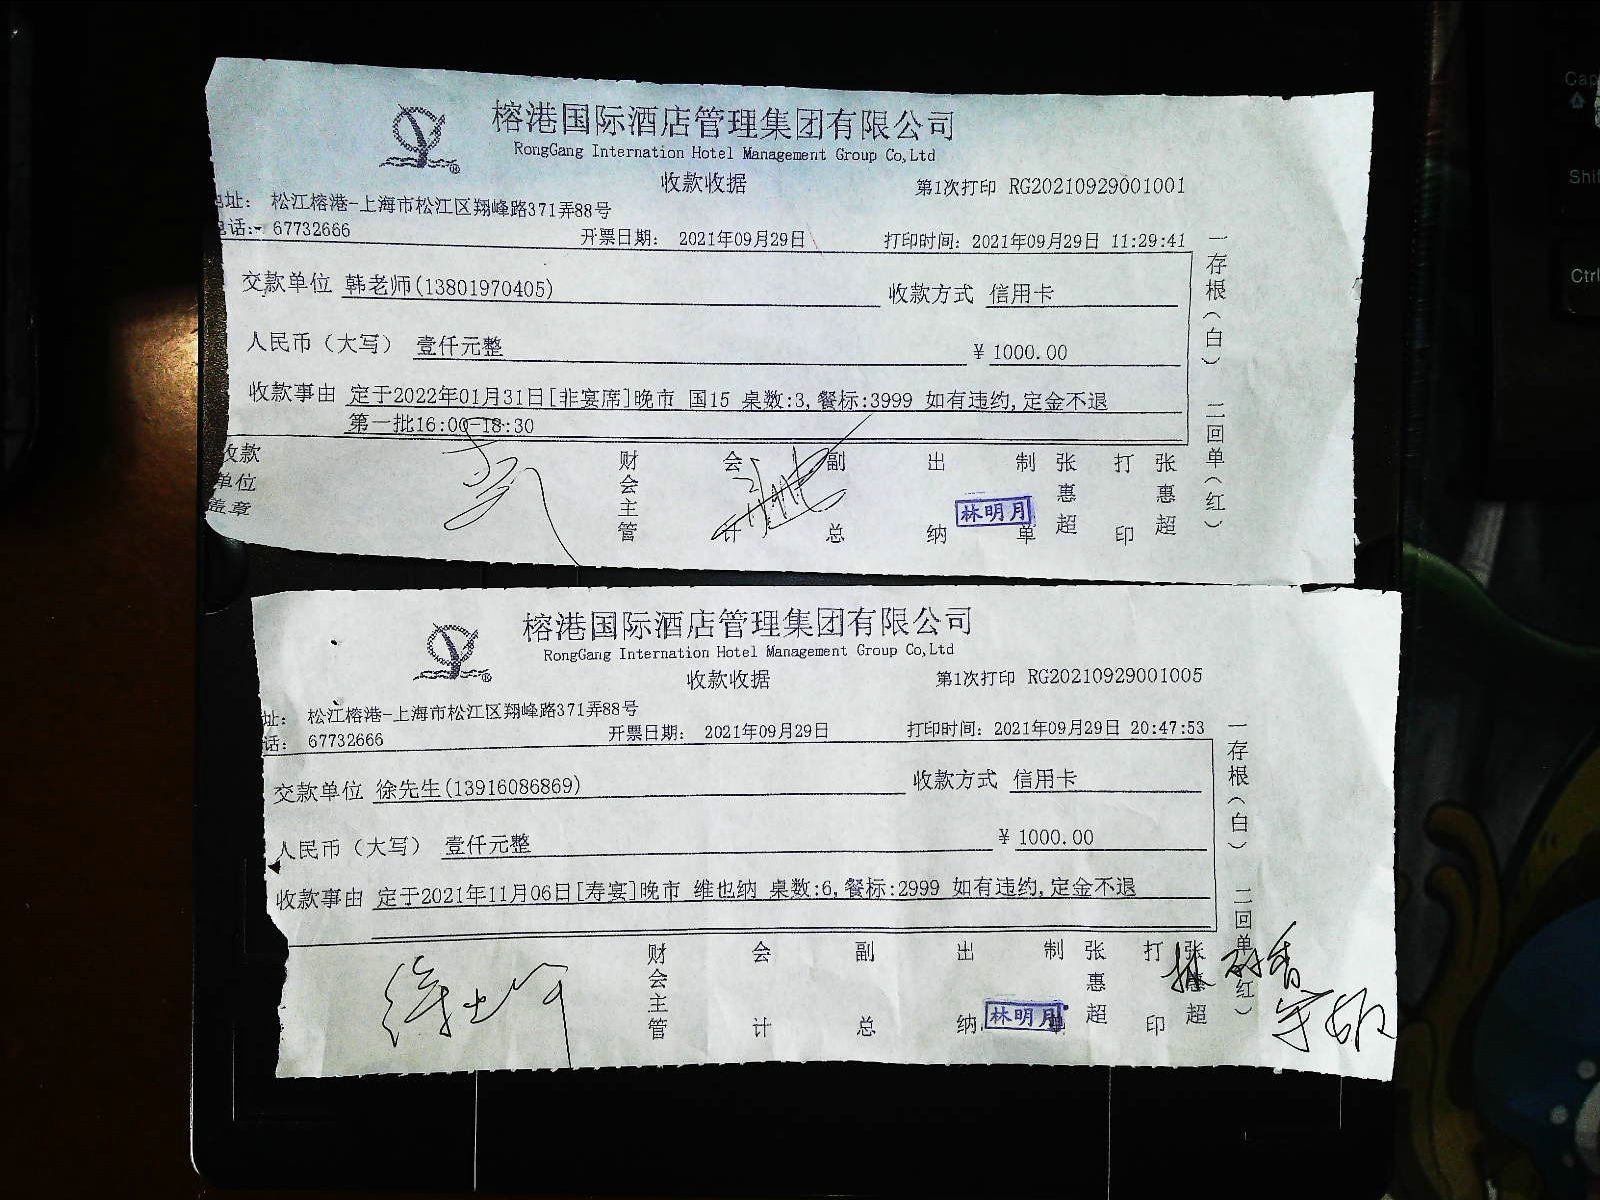 榕港国际酒店管理集团有限公司
RongGang Internation Hotel Management Group Co,Ltd
收款收据 第1次打印 RG20210929001001
址: 松江榕港-上海市松江区翔峰路371弄88号
话:- 67732666 开票日期: 2021年09月29日 打印时间: 2021年09月29日 11:29:41
交款单位 韩老师(13801970405) 收款方式 信用卡
人民币(大写) 壹仟元整 ¥ 1000.00
收款事由 定于2022年01月31日[非宴席]晚市 国15 桌数:3,餐标:3999 如有违约,定金不退
第一批16:00-18:30
收款单位盖章 财会主管 会计 副总 出纳 林明月 制单 张惠超 打印 张惠超
一存根(白) 二回单(红)
榕港国际酒店管理集团有限公司
RongGang Internation Hotel Management Group Co,Ltd
收款收据 第1次打印 RG20210929001005
址: 松江榕港-上海市松江区翔峰路371弄88号
话: 67732666 开票日期: 2021年09月29日 打印时间: 2021年09月29日 20:47:53
交款单位 徐先生(13916086869) 收款方式 信用卡
人民币(大写) 壹仟元整 ¥ 1000.00
收款事由 定于2021年11月06日[寿宴]晚市 维也纳 桌数:6,餐标:2999 如有违约,定金不退
财会主管 会计 副总 出纳 林明月 制单 张惠超 打印 张惠超
一存根(白) 二回单(红)
Cap
Shi
Ctrl